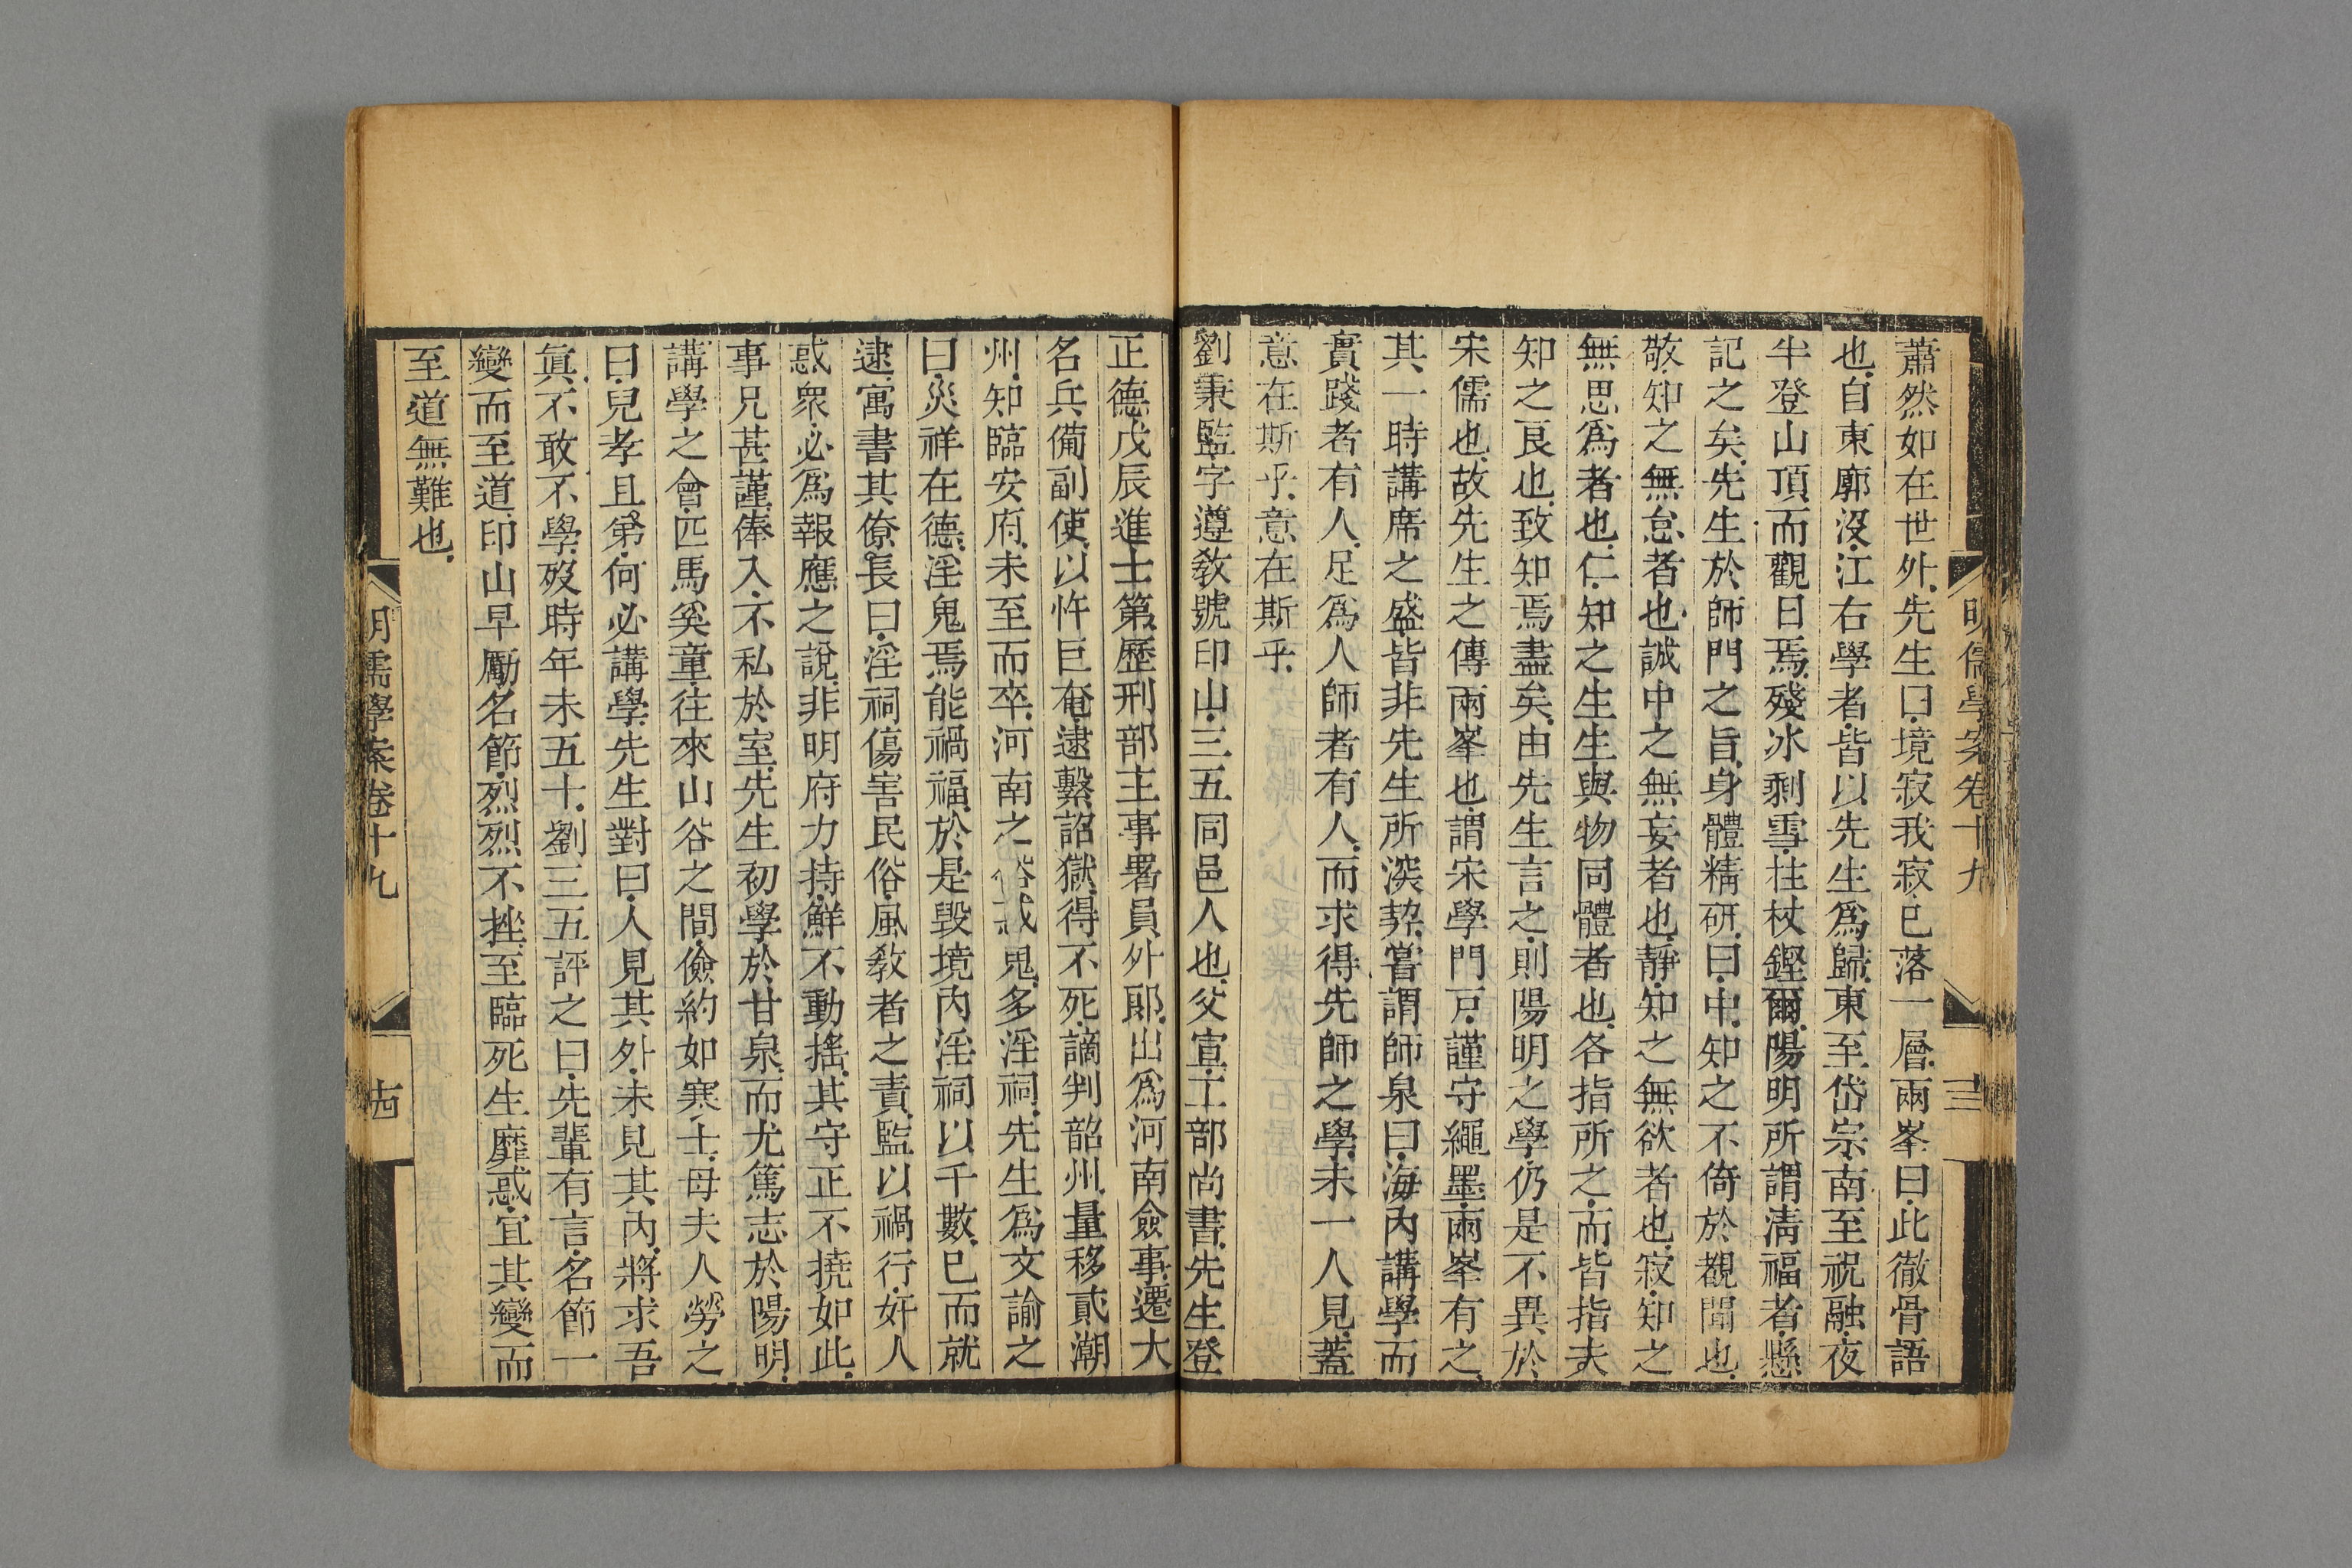 明儒學案卷十九
蕭然如在世外．先生曰．境寂我寂．已落一層．兩峯曰．此徹骨語
也．自東廓沒．江右學者．皆以先生爲歸．東至岱宗．南至祝融．夜
半登山頂．而觀日焉．殘冰剩雪．拄杖鏗爾．陽明所謂淸福者．懸
記之矣．先生於師門之旨．身體精研．曰．中．知之不倚於覩聞也．
敬．知之無怠者也．誠中之無妄者也．靜．知之無欲者也．寂．知之
無思爲者也．仁．知之生生與物同體者也．各指所之．而皆指夫
知之良也．致知焉盡矣．由先生言之．則陽明之學．仍是不異於
宋儒也．故先生之傳兩峯也．謂宋學門戸．謹守繩墨．兩峯有之．
其一時講席之盛．皆非先生所深契．嘗謂師泉曰．海內講學而
實踐者有人．足爲人師者有人．而求得先師之學．未一人見．蓋
意在斯乎．意在斯乎．
劉秉監字遵敎號印山．三五同邑人也．父宣．工部尚書．先生登
正德戊辰進士第．歷刑部主事署員外郞．出爲河南僉事．遷大
名兵備副使．以忤巨奄．逮繫詔獄．得不死．謫判韶州．量移貳潮
州．知臨安府．未至而卒．河南之俗惑鬼．多淫祠．先生爲文諭之
曰．災祥在德．淫鬼焉能禍福．於是毀境內淫祠以千數．已而就
逮．寓書其僚長曰．淫祠傷害民俗．風敎者之責．監以禍行．奸人
惑衆．必爲報應之說．非明府力持．鮮不動搖．其守正不撓如此．
事兄甚謹．俸入．不私於室．先生初學於甘泉．而尤篤志於陽明．
講學之會．匹馬奚童．往來山谷之間．儉約如寒士．母夫人勞之
曰．兒孝且弟．何必講學．先生對曰．人見其外．未見其內．將求吾
眞．不敢不學．歿時年未五十．劉三五評之曰．先輩有言．名節一
變而至道．印山早勵名節．烈烈不挫．至臨死生靡惑．宜其變而
至道無難也．
明儒學案卷十九